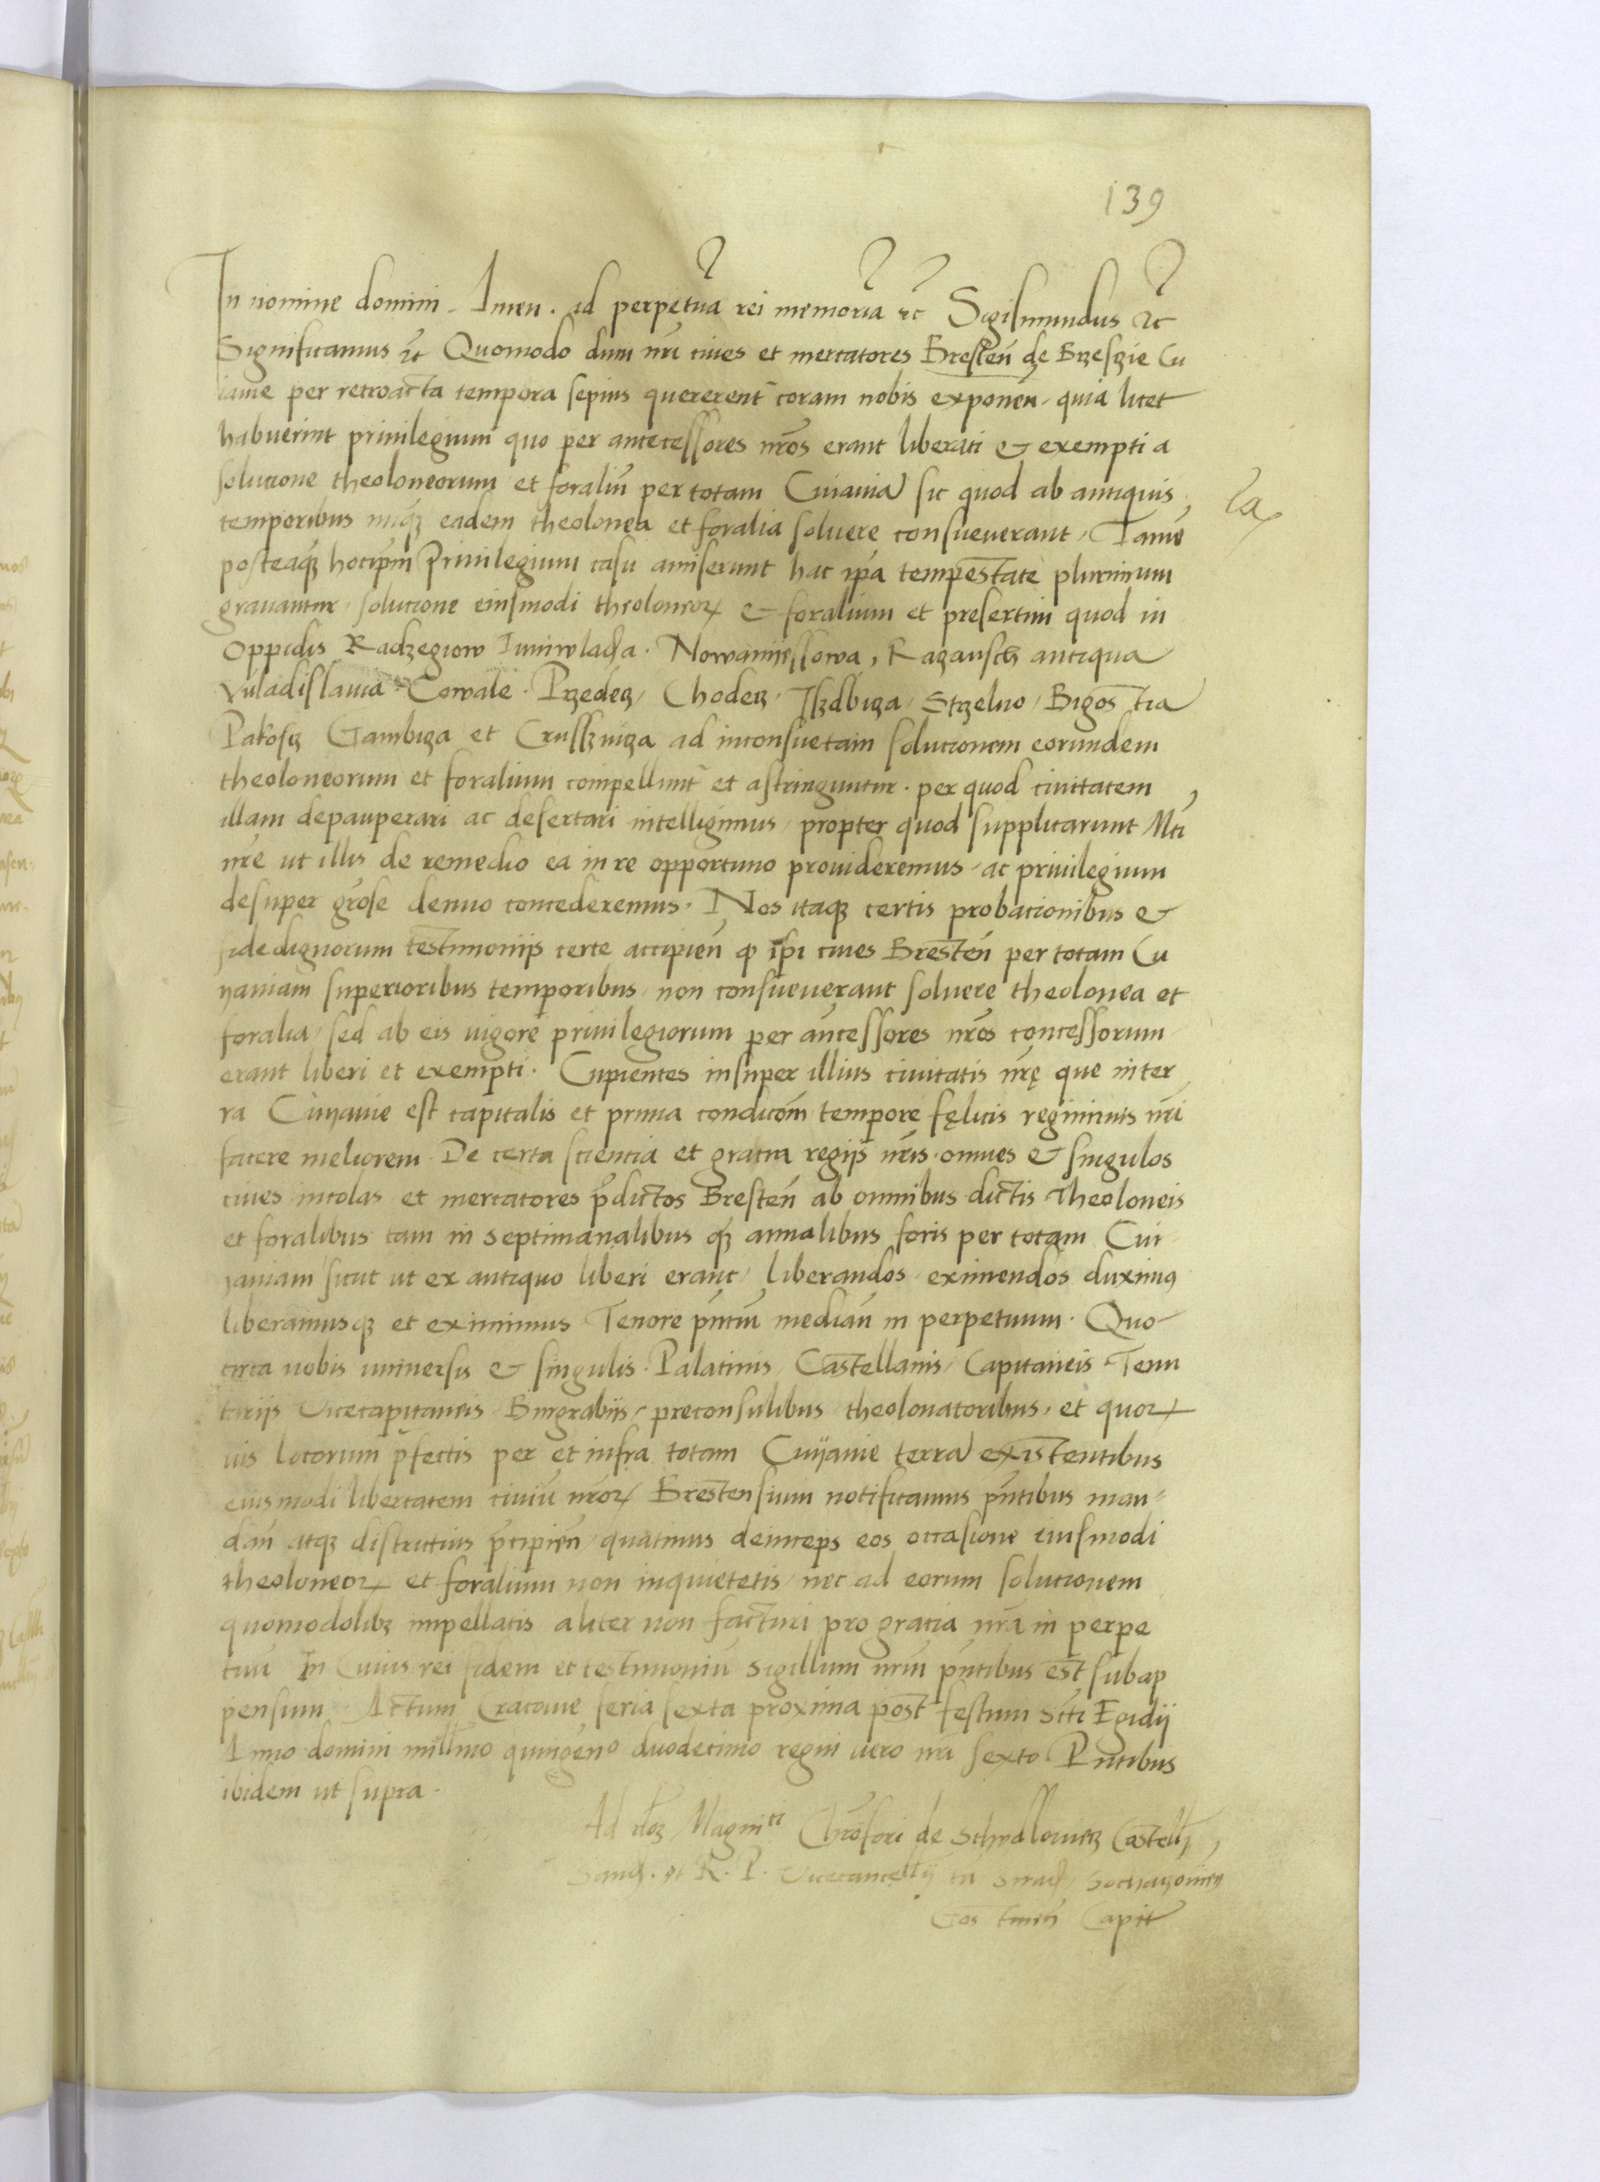 139
In nomine domini. Amen. Ad perpetuā rei memoriā ꝛc̄ Sigismundus ꝛc̄
Significamus ꝛc̄ Quomodo dum nr̄i ciues et mercatores Bresten̄ de Brzesczie Cu
iauie per retroacta tempora sepius quererent̄ coram nobis exponen̄, quia licet
habuerint priuilegium quo per antecessores nr̄os erant liberati & exempti a
solucione theoloneorum et foraliū per totam Cuiauiā sic quod ab antiquis
temporibus nūqꝫ eadem theolonea et foralia soluere consueuerant, Tamē
posteaqꝫ hoc ip̄m Priuilegium casu amiserunt hac ip̄a tempestate plurimum
grauantur, solucione eiusmodi theoloneoꝝ & foralium et presertim quod in
Oppidis Radzegiow Iuniwladia. Nowamijessowa, Razansch antiqua
Vuladislauia. Cowale. Przedecz, Chodecz. Iszdbicza, Strzelno, Bigostia
Pakoscz Gambicza et Crusszuicza ad inconsuetam solucionem eorundem
theoloneorum et foralium compellunt̄ et astringuntur. per quod ciuitatem
illam depauperari ac desertari intelligimus, propter quod supplicarunt Mti
nr̄e ut illis de remedio ea in re opportuno prouideremus, ac priuilegium
desuper gr̄ose denuo concederemus. Nos itaqꝫ certis probacionibus &
fidedignorum testimoniis certe accipien̄ ꝙ ip̄i ciues Bresten̄ per totam Cu
yauiam superioribus temporibus, non consueuerant soluere theolonea et
foralia, sed ab eis vigore priuilegiorum per an̄cessores nr̄os concessorum
erant liberi et exempti. Cupientes insuper illius ciuitatis nr̄ę que in ter
ra Cuyauie est capitalis et prima condicōm tempore fęlicis regiminis nr̄i
facere meliorem. De certa sciencia et gratia regijs nr̄is. omnes & singulos
ciues incolas et mercatores p̄dictos Bresten̄ ab omnibus dictis Theoloneis
et foralibus tam in septimanalibus qꝫ annalibus foris per totam Cui
yauiam sicut ut ex antiquo liberi erant, liberandos, eximendos duximꝰ
liberamusqꝫ et eximimus Tenore pn̄tiū median̄ in perpetuum. Quo
circa vobis vniuersis & singulis. Palatinis, Castellanis, Capitaneis Tenu
tarijs Vicecapitaneis, Burgrabijs, preconsulibus, theolonatoribus, et quoꝝ
uis locorum p̄fectis per et infra totam Cuyauie terrā existentibus
eiusmodi libertatem ciuiū nr̄oꝝ Brestensium notificamus pn̄tibus man
dan̄ atqꝫ districtius p̄cipien̄, quatinus deinceps eos occasione eiusmodi
theoloneoꝝ et foralium non inquietetis, nec ad eorum solucionem
quomodolibꝫ impellatis aliter non facturi pro gratia nr̄a in perpe
tuū In Cuius rei fidem et testimoniū Sigillum nr̄m pn̄tibus est subap
pensum. Actum Cracouie feria sexta proxima post festum Scti Egidij
Anno domini millm̄o quingen̄º duodecimo regni uero nr̄i sexto Pn̄tibus
ibidem ut supra.
Ad rl̄oꝫ Magnⁱᶜⁱ Chrōfori de Schydlowicz Castell̄
Sand. et R. P. Vicecancell̄ij ca Sirad, Sochaczouien̄
Gostinen̄ Capit